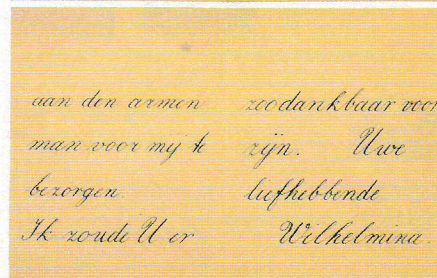 aan den armen
man voor mij te
bezorgen.
Ik zoude U er
zoo dankbaar voor
zijn. Uwe
liefhebbende
Wilhelmina.